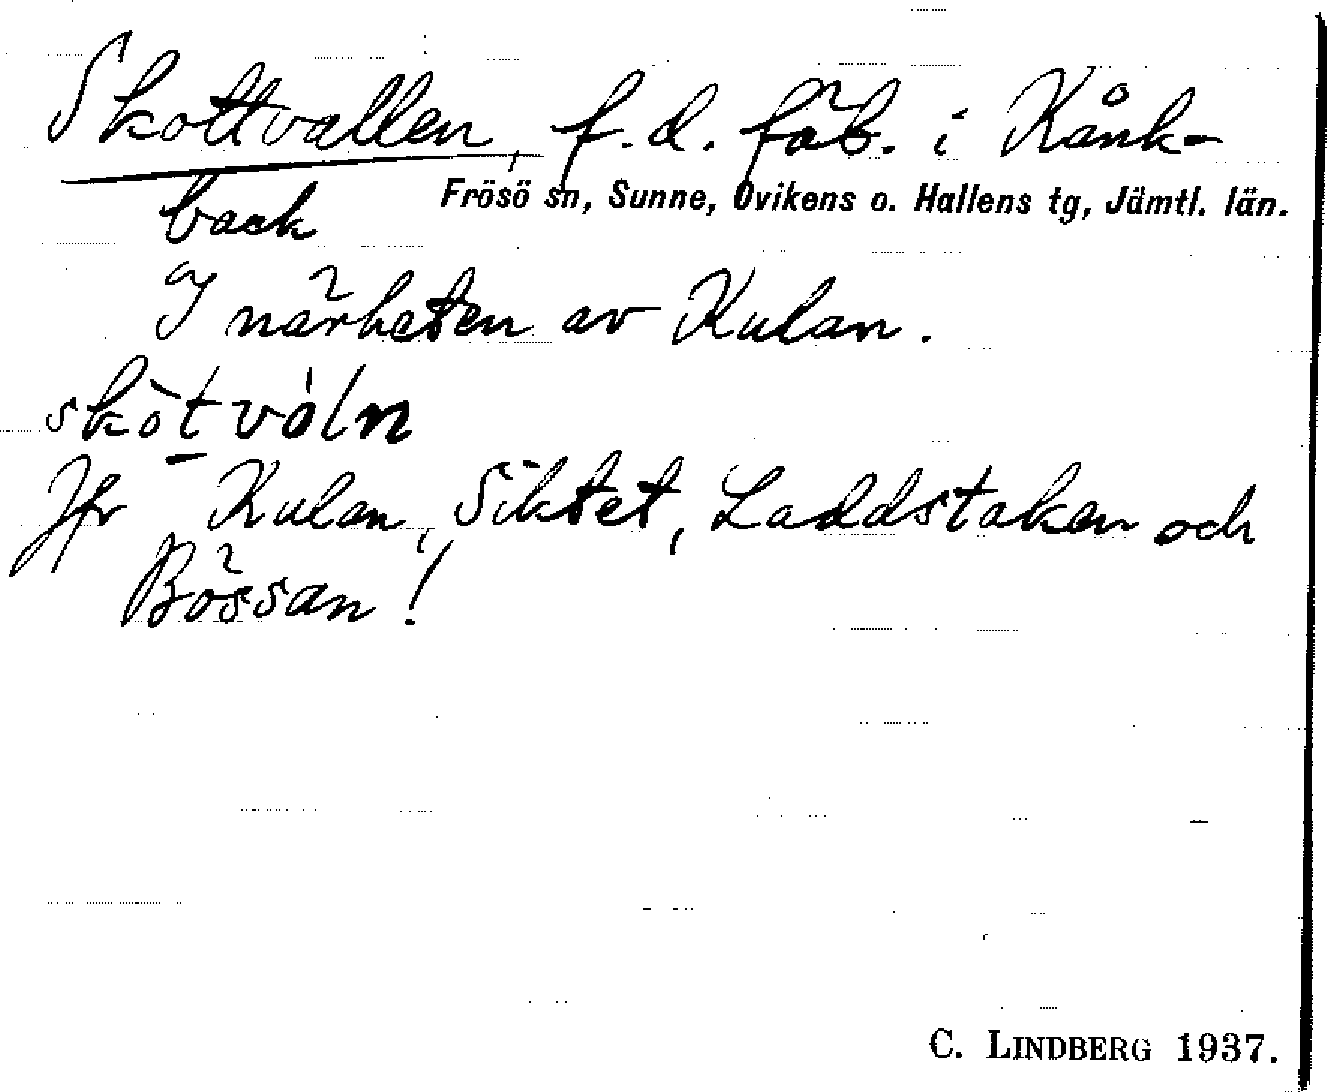 Skottvallen, f.d. fäb. i Kånk-
Frösö sn, Sunne, Ovikens o. Hallens tg, Jämtl. län.
back
I närheten av Kulan.
skòt vòln
Jfr Kulan, Siktet, Laddstaken och
Bössan!
C. LINDBERG 1937.